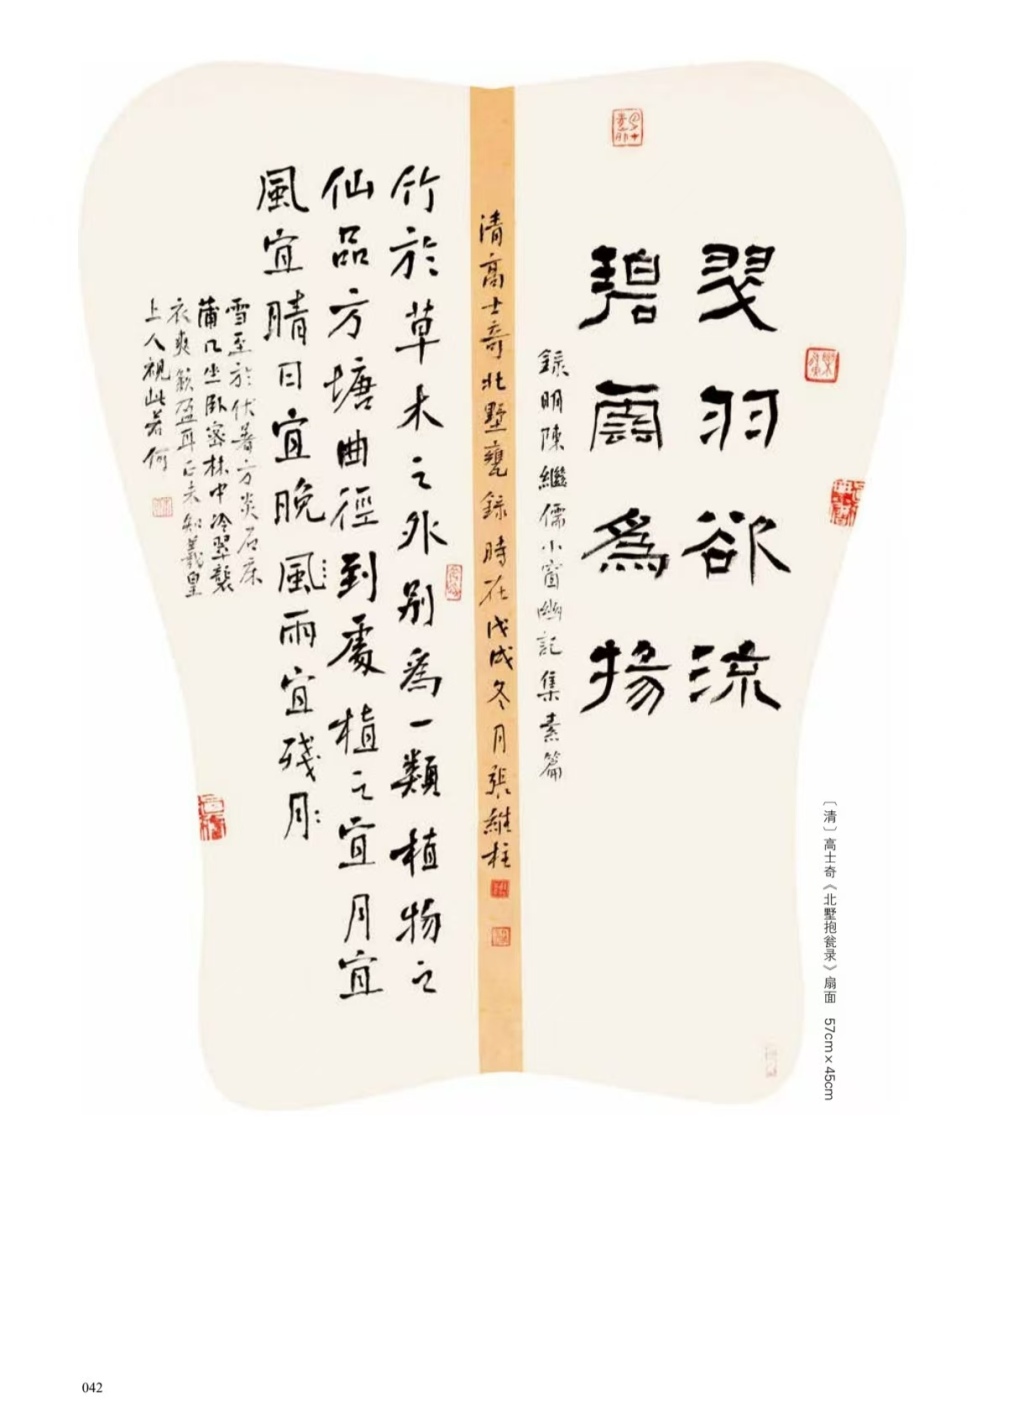 翠羽欲流
碧雲為揚
錄明陳繼儒小窗幽記集素篇
清高士奇北墅甕錄時在戊戌冬月張維柱
竹於草木之外別為一類植物之
仙品方塘曲徑到處植之宜月宜
風宜晴日宜晚風雨宜殘月
雪至於伏暑方炎石床
蒲几坐臥密林中冷翠襲
衣爽籁盈耳正未知羲皇
上人視此若何
〔清〕高士奇《北墅抱瓮录》扇面 57cm×45cm
042